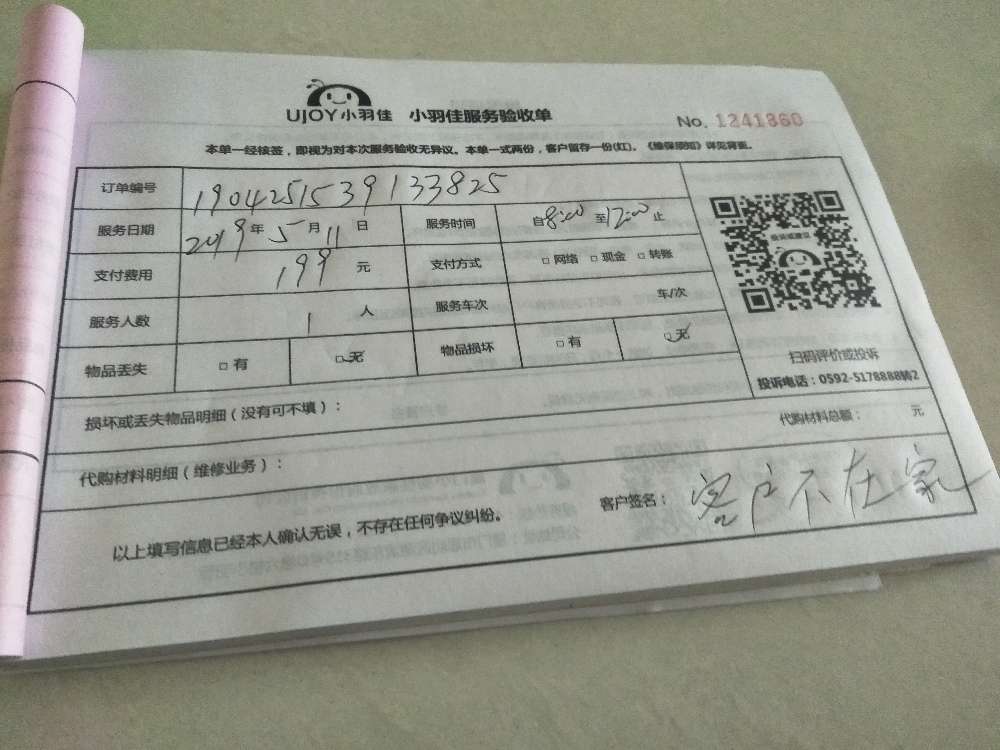 UJOY小羽佳 小羽佳服务验收单 No. 1241860
本单一经核签，即视为对本次服务验收无异议。本单一式两份，客户留存一份(红)。《维保须知》详见背面。
订单编号 190425153913​3825
服务日期 2019年5月11日 服务时间 自8:00至12:00止
支付费用 199元 支付方式 □ 网络 □ 现金 □ 转账
服务人数 1人 服务车次 车/次
物品丢失 □ 有 □ 无 物品损坏 □ 有 □ 无
扫码评价或投诉
投诉电话：0592-5178888转2
损坏或丢失物品明细（没有可不填）：
代购材料明细（维修业务）： 代购材料总额： 元
以上填写信息已经本人确认无误，不存在任何争议纠纷。 客户签名： 客户不在家